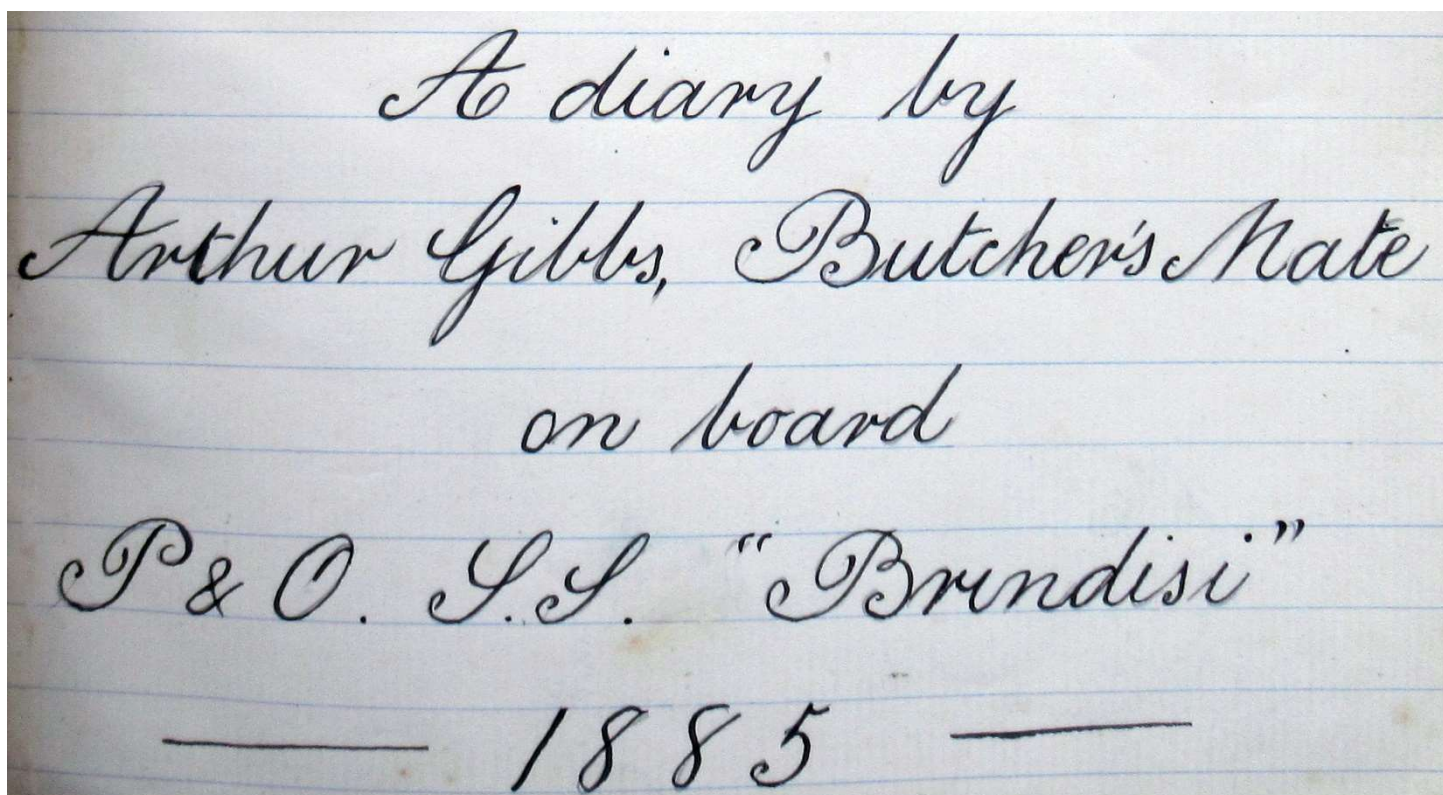 A diary by
Arthur Gibbs, Butcher's Mate
on board
P & O. S.S. "Brindisi"
— 1885 —